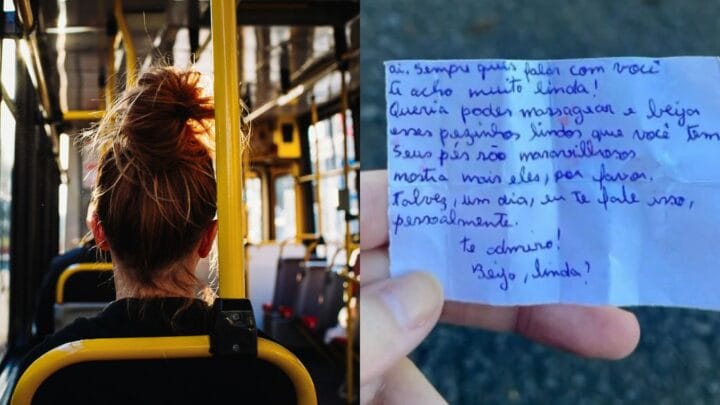 oi. Sempre quis falar com você
te acho muito linda!
Queria poder massagear e beijar
esses pezinhos lindos que você tem
Seus pés são maravilhosos
mostra mais eles, por favor.
Talvez, um dia, eu te fale isso,
pessoalmente.
te admiro!
Beijo, linda!